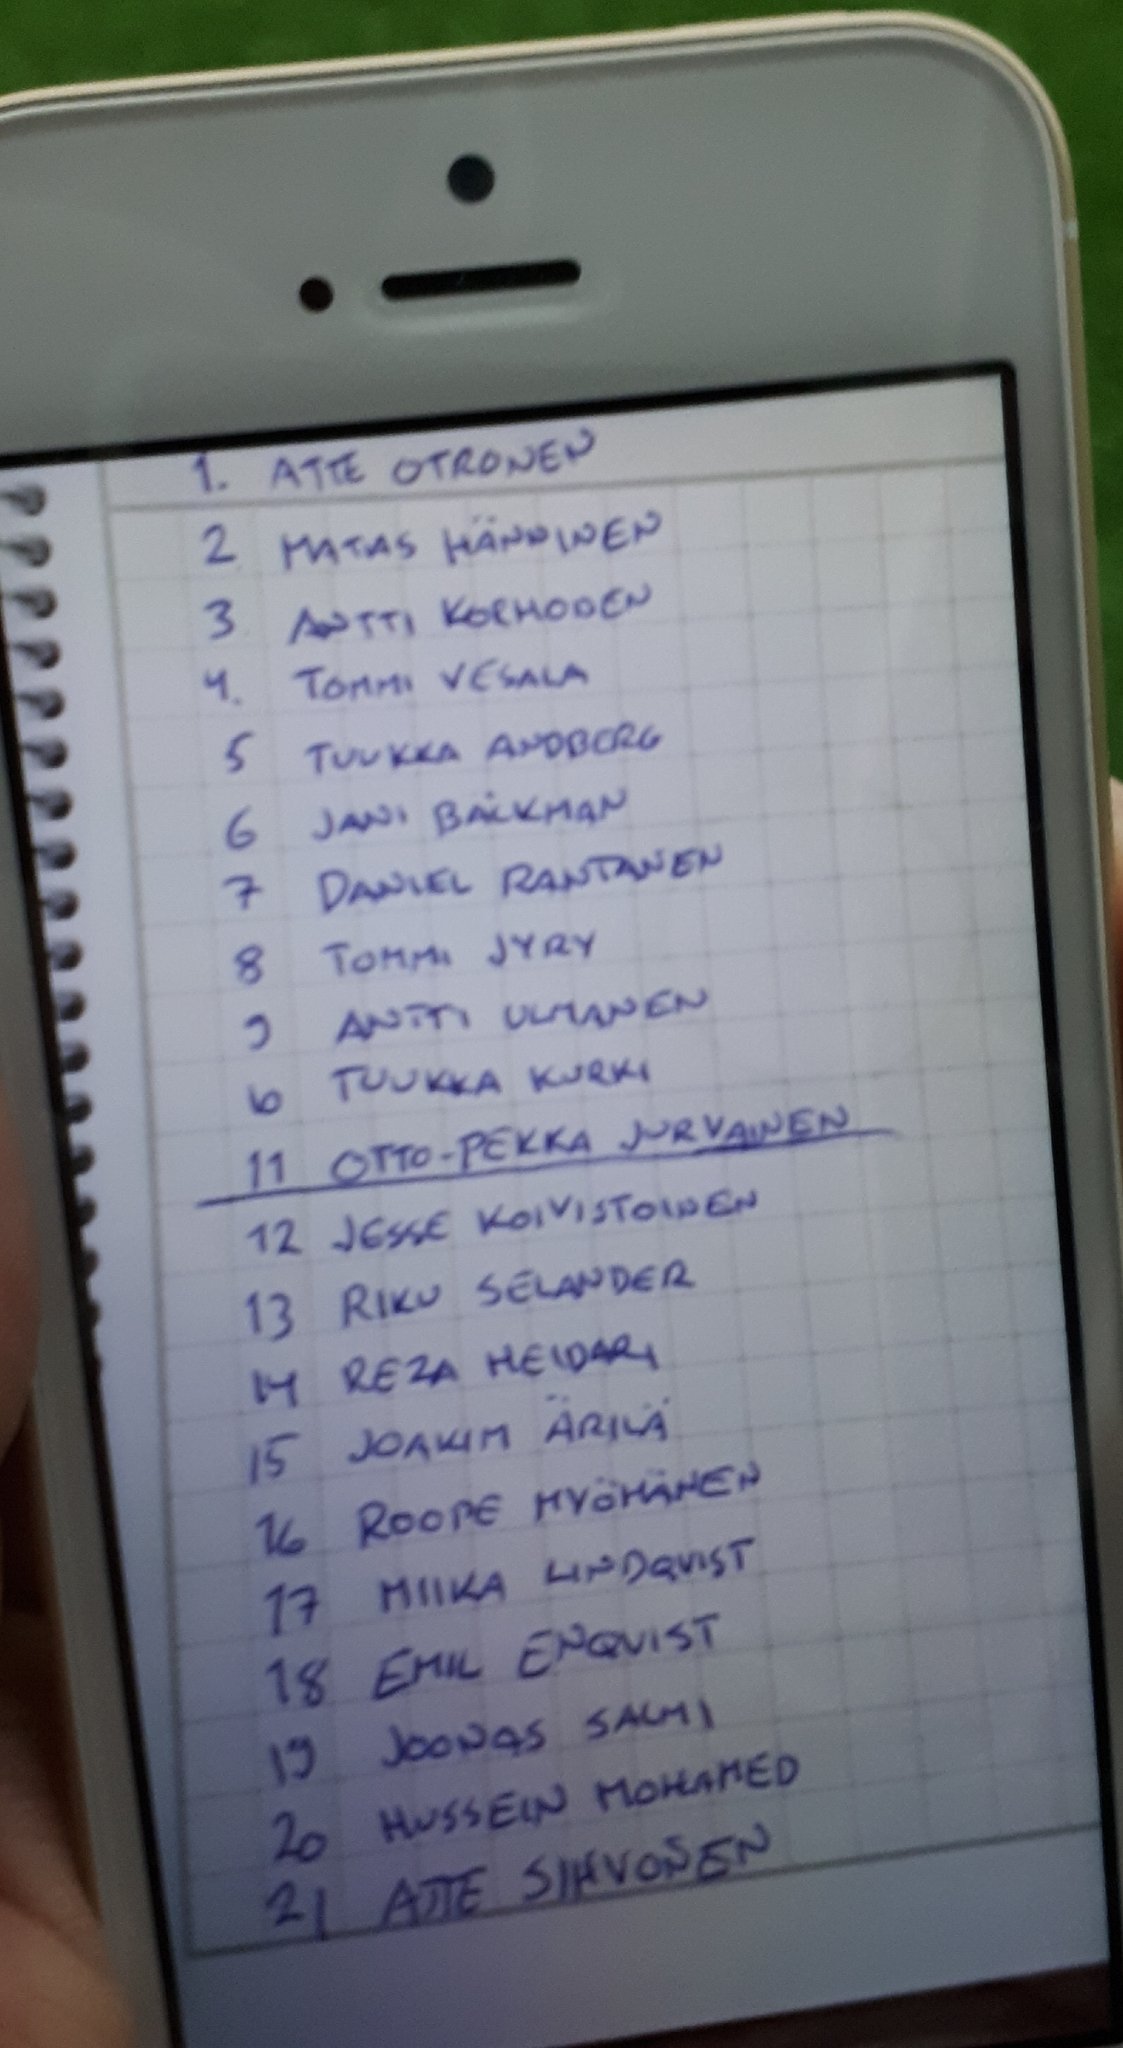 1. ATTE OTRONEN
2 MATIAS HÄNNINEN
3 ANTTI KORHONEN
4. TOMMI VESALA
5 TUUKKA ANDBERG
6 JANI BÄCKMAN
7 DANIEL RANTANEN
8 TOMMI JYRY
9 ANTTI ULMANEN
10 TUUKKA KURKI
11 OTTO-PEKKA JURVAINEN
12 JESSE KOIVISTOINEN
13 RIKU SELANDER
14 REZA HEIDARI
15 JOAKIM ÄRILÄ
16 ROOPE MYÖHÄNEN
17 MIIKA LINDQVIST
18 EMIL ENQVIST
19 JOONAS SALMI
20 HUSSEIN MOHAMED
21 ATTE SIHVONEN